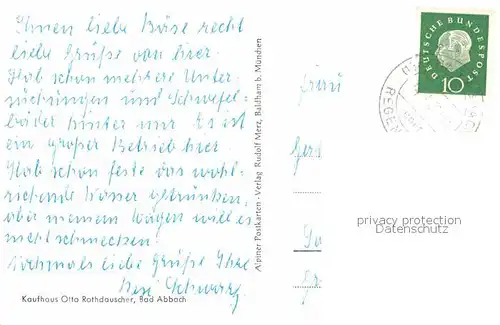 Ihnen liebe Böse recht
liebe Grüße von hier.
Hab schon mehrere Unter
suchungen und Schwefel-
bäder hinter mir Es ist
ein großer Betrieb hier.
Hab schon feste das wohl-
riechende Wasser getrunken,
aber meinem Magen will es
nicht schmecken!
Nochmals liebe Grüße Ihre
Schwarz
Kaufhaus Otto Rothdauscher, Bad Abbach
Alpiner Postkarten - Verlag Rudolf Merz, Baldham b. München
Frau
DEUTSCHE BUNDESPOST
10
privacy protection
Datenschutz